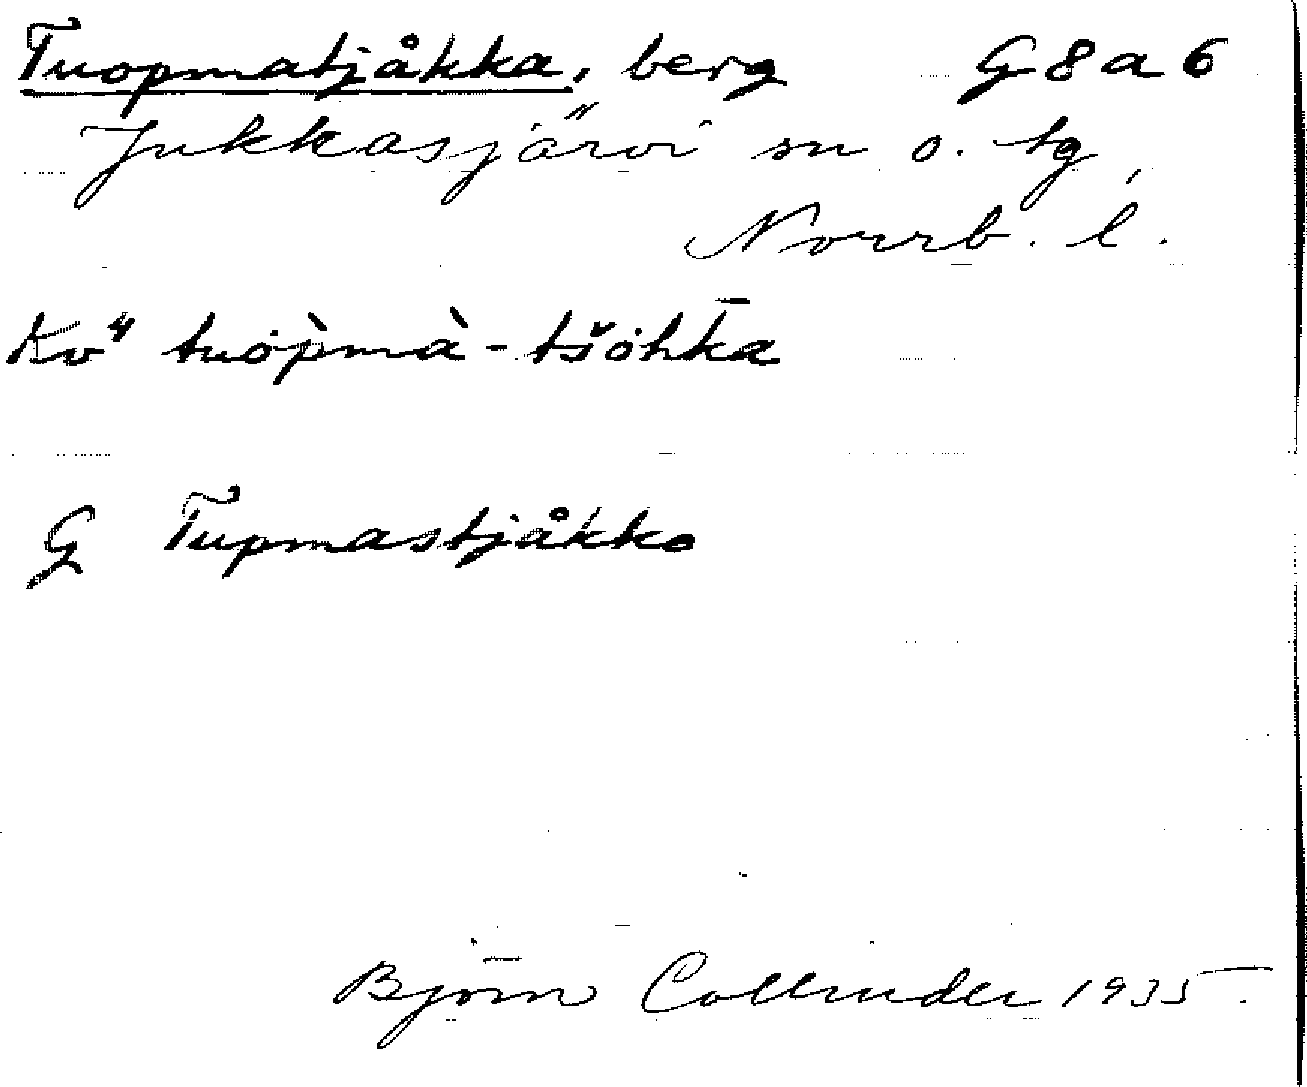 Tuopmatjåkka, berg G8a6
Jukkasjärvi sn o. tg,
Norrb. l.
Kv⁴ tuȯ̀pmà-tšȯhk̄a
G Tupmastjåkko
Björn Collinder 1935.